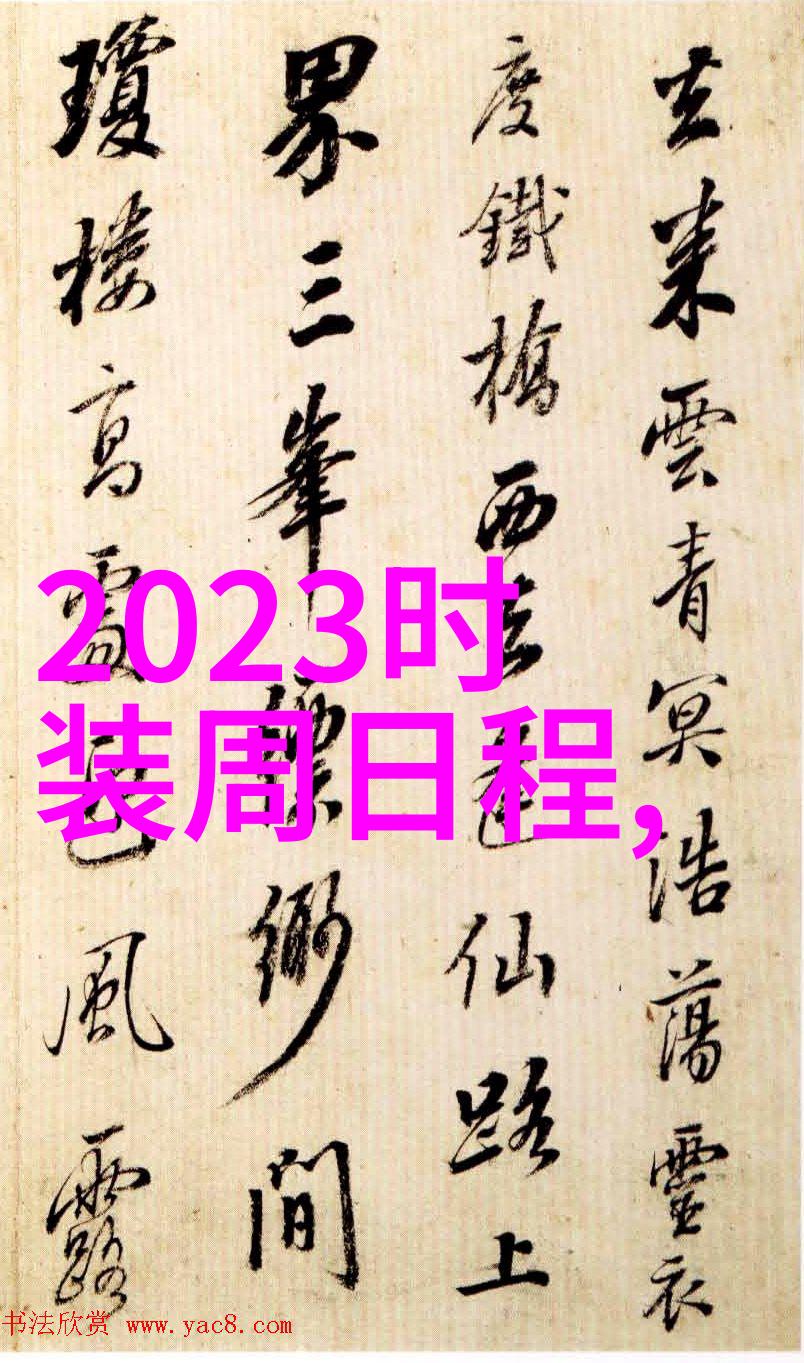 去来雲青冥浩蕩靈衣
度鐵橋西仙路上
界三峯縹緲間
瓊樓高風露
2023时
装周日程,
书法欣赏 www.yac8.com